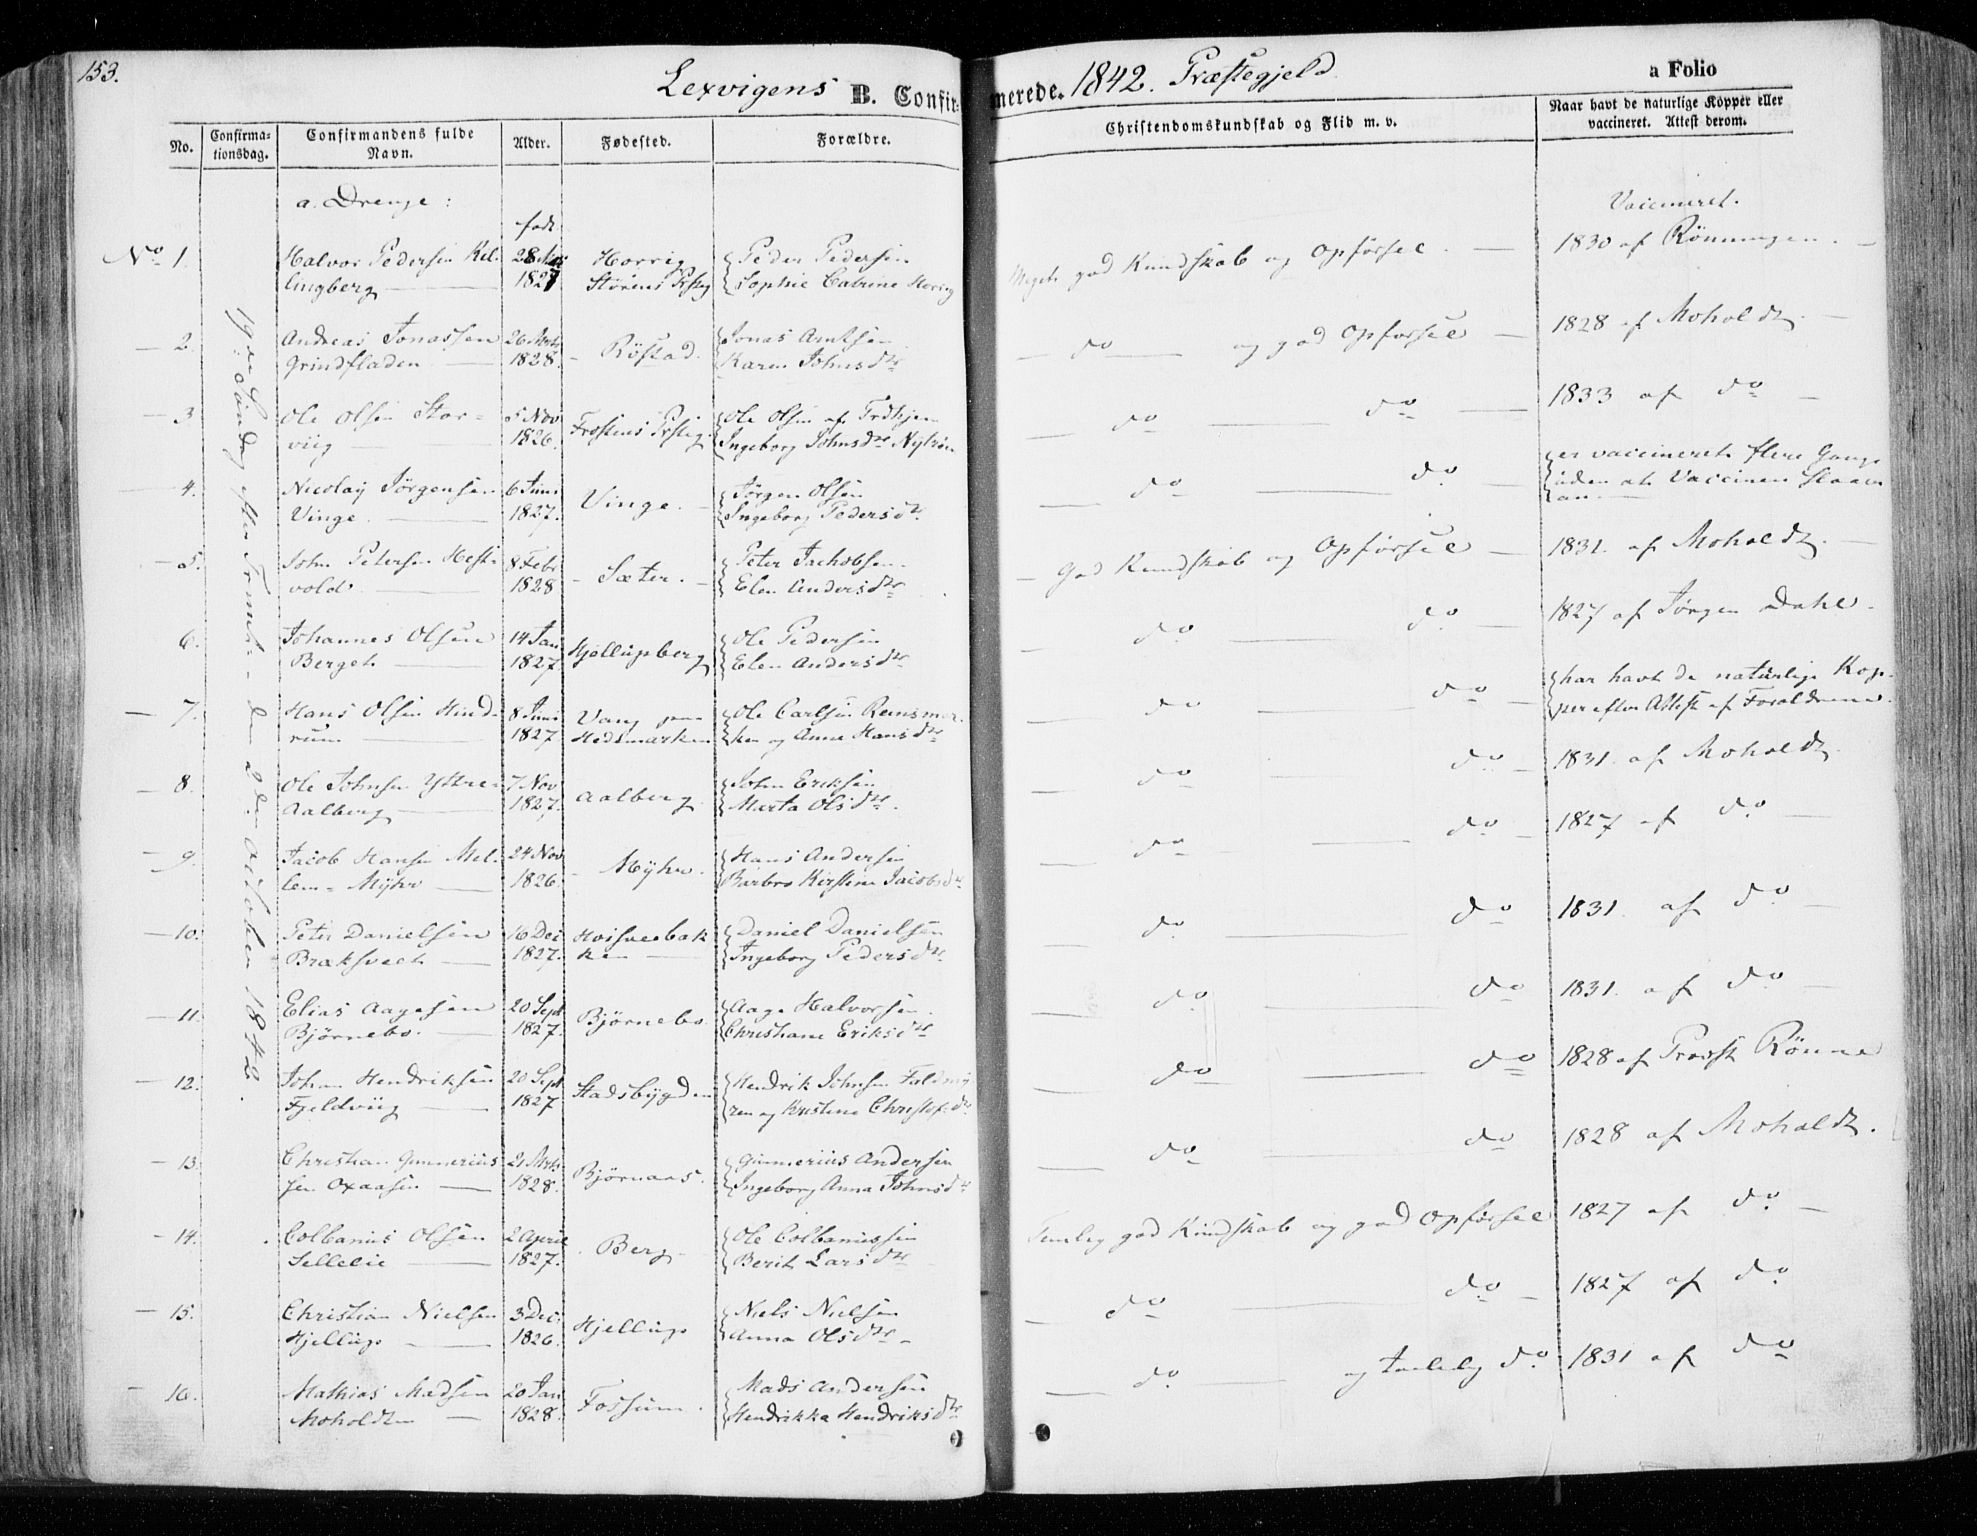 153.
Lexvigens B. Confir=
merede. 1842. Præstegjeld
a Folio
No.
Confirma-
tionsdag.
Confirmandens fulde
Navn.
Alder.
Fødested.
Forældre.
Christendomskundskab og Flid m. v.
Naar havt de naturlige Kopper eller
vaccineret. Attest derom.
a. Drenge:
født
Vaccineret.
19de Søndag efter Trinit: den 2den October 1842.
No 1. Halvor Pedersen Kil- 28 1827 Horrig Peder Pedersen Meget god Kundskab og Opførsel. 1830 af Rönningen.
lingberg Störens Prstg Sophie Catrine Horrig
2. Andreas Jonassen 26 Mrts Röstad. Jonas Arntsen do og god Opførsel 1828 af Moholdt.
Grindfladen 1828. Karen Johnsdtr
3 Ole Olsen Stor= 5 Nov Frostens Prstg. Ole Olsen af Trdhjem do do 1833 af do
viig 1826. Ingeborg Johnsdtr
4. Nicolaÿ Jörgensen 6 Juni Vinge. Jörgen Olsen do do er vaccineret flere Gange
Vinge. 1827. Ingeborg Pedersdtr. uden at Vaccinen slaaer
an.
5. John Petersen Hest- 8 Febr Sæter. Peter Jachobsen God Kundskab og Opførsel 1831. af Moholdt.
vold 1828 Elen Andersdtr
6. Johannes Olsen 14 Jan Hjellupberg Ole Pedersen do do 1827 af Jörgen Dahl.
Berget 1827. Elen Andersdtr
7. Hans Olsen Hind- 8 Juni Vang paa Ole Carlsen Reinsmar- do do har havt de naturlige Kop-
rum 1827 Hedemarken ken og Anne Hansdtr per efter Attest af Foreldrene.
8. Ole Johnsen Ytter- 7 Nov Aalberg John Eriksen do do 1831. af Moholdt
Aalberg 1827. Marta Olsdtr.
9. Jacob Hansen Mel- 24 Nov Mÿhr. Hans Andersen do do 1827 af do
lem- Mÿhr 1826. Barbro Kirstine Jacobsdtr
10. Peter Danielsen 16 Dec Daniel Danielsen do do 1831. af do
1827. Ingeborg Pedersdtr.
11. Elias Aagesen 20 Sept Björnebo. Aage Halvorsen. do do 1831. af do
Björnebo. 1827. Christiane Eriksdtr
12. Johan Hendriksen 20 Sept Stadsbÿgden Hendrik Johnsen Faldmÿ do do 1828 af Provst Rönne
Fjeldviig 1827 ren og Kristine Christofsdtr
13. Christian Gunnerius 21 Mrts Björnaas. Gunnerius Andersen do do 1828 af Moholdt.
sen Oxaasen 1828. Ingeborg Anna Johnsdtr
14. Colbanius Olsen 2 April Berg Ole Colbaniussen Temlig god Kundskab og god Opførsel 1827 af do
Sellelie 1827. Berit Larsdtr
15. Christian Nielsen 3 Dec. Hjellup Niels Nielsen do do 1827 af do
Hjellup 1826. Anna Olsdtr
16. Mathias Madsen 20 Jan Fossum. Mads Andersen do og temlig do 1831 af do
Moholdt 1828. Hendrikka Hendriksdtr